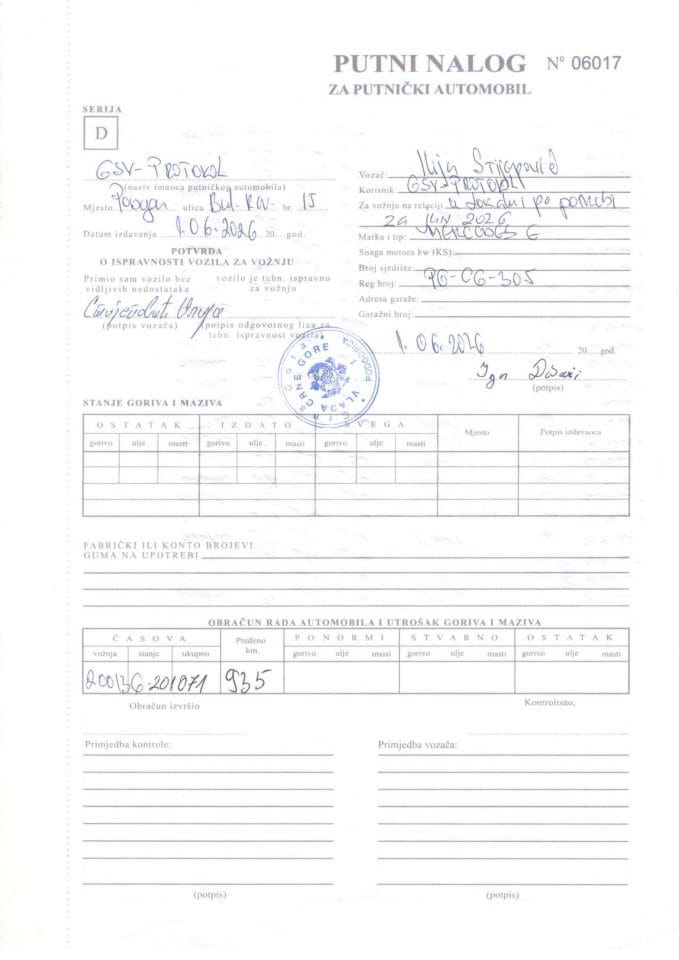 PUTNI NALOG Nº 06017
ZA PUTNIČKI AUTOMOBIL
SERIJA
D
GSV-PROTOKOL
(naziv imaoca putničkog automobila)
Mjesto ulica Bul. Rev. br. 15
Datum izdavanja 1.06.2026 20 god.
POTVRDA
O ISPRAVNOSTI VOZILA ZA VOŽNJU
Primio sam vozilo bez vidljivih nedostataka
vozilo je tehn. ispravno za vožnju
(potpis vozača)
(potpis odgovornog lica za tehn. ispravnost vozila)
Vozač: Ilija
Korisnik: GSV-PROTOKOL
Za vožnju na relaciji u lokalu i po potrebi
za JUN 2026
Marka i tip: MERCEDES E
Snaga motora kw (KS):
Broj sjedišta:
Reg broj: PG-CG-305
Adresa garaže:
Garažni broj:
1.06.2026 20 god.
Igor
(potpis)
VLADA CRNE GORE
PODGORICA
STANJE GORIVA I MAZIVA
OSTATAK IZDATO SVEGA Mjesto Potpis izdavaoca
gorivo ulje masti gorivo ulje masti gorivo ulje masti
FABRIČKI ILI KONTO BROJEVI
GUMA NA UPOTREBI
OBRAČUN RADA AUTOMOBILA I UTROŠAK GORIVA I MAZIVA
ČASOVA Pređeno km. PO NORMI STVARNO OSTATAK
vožnja stanje ukupno gorivo ulje masti gorivo ulje masti gorivo ulje masti
200136-201071 935
Obračun izvršio
Kontrolisao,
Primjedba kontrole:
Primjedba vozača:
(potpis)
(potpis)